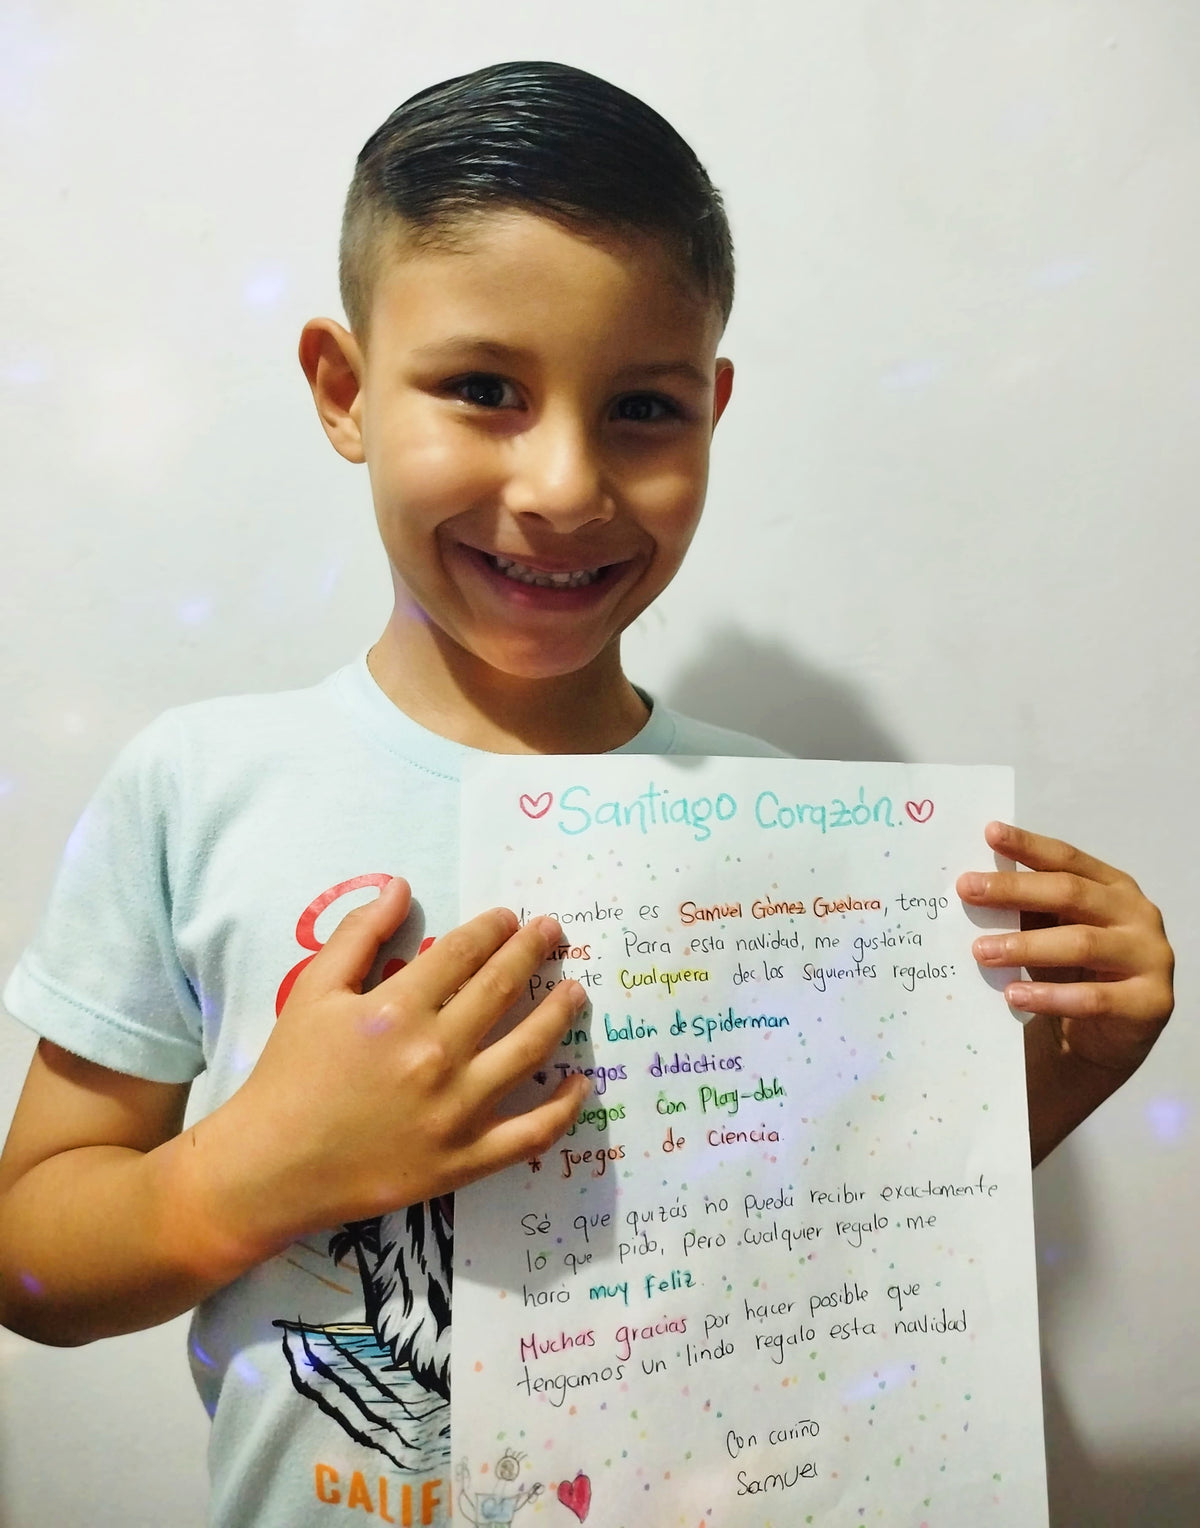 Santiago Corazón.
nombre es Samuel Gómez Guevara, tengo
años. Para esta navidad, me gustaría
cualquiera de los siguientes regalos:
un balón de Spiderman
* Juegos didácticos
Juegos con Play-doh
* Juegos de ciencia.
Sé que quizás no pueda recibir exactamente
lo que pido, pero cualquier regalo me
hará muy feliz.
Muchas gracias por hacer posible que
tengamos un lindo regalo esta navidad
Con cariño
Samuel
CALIF